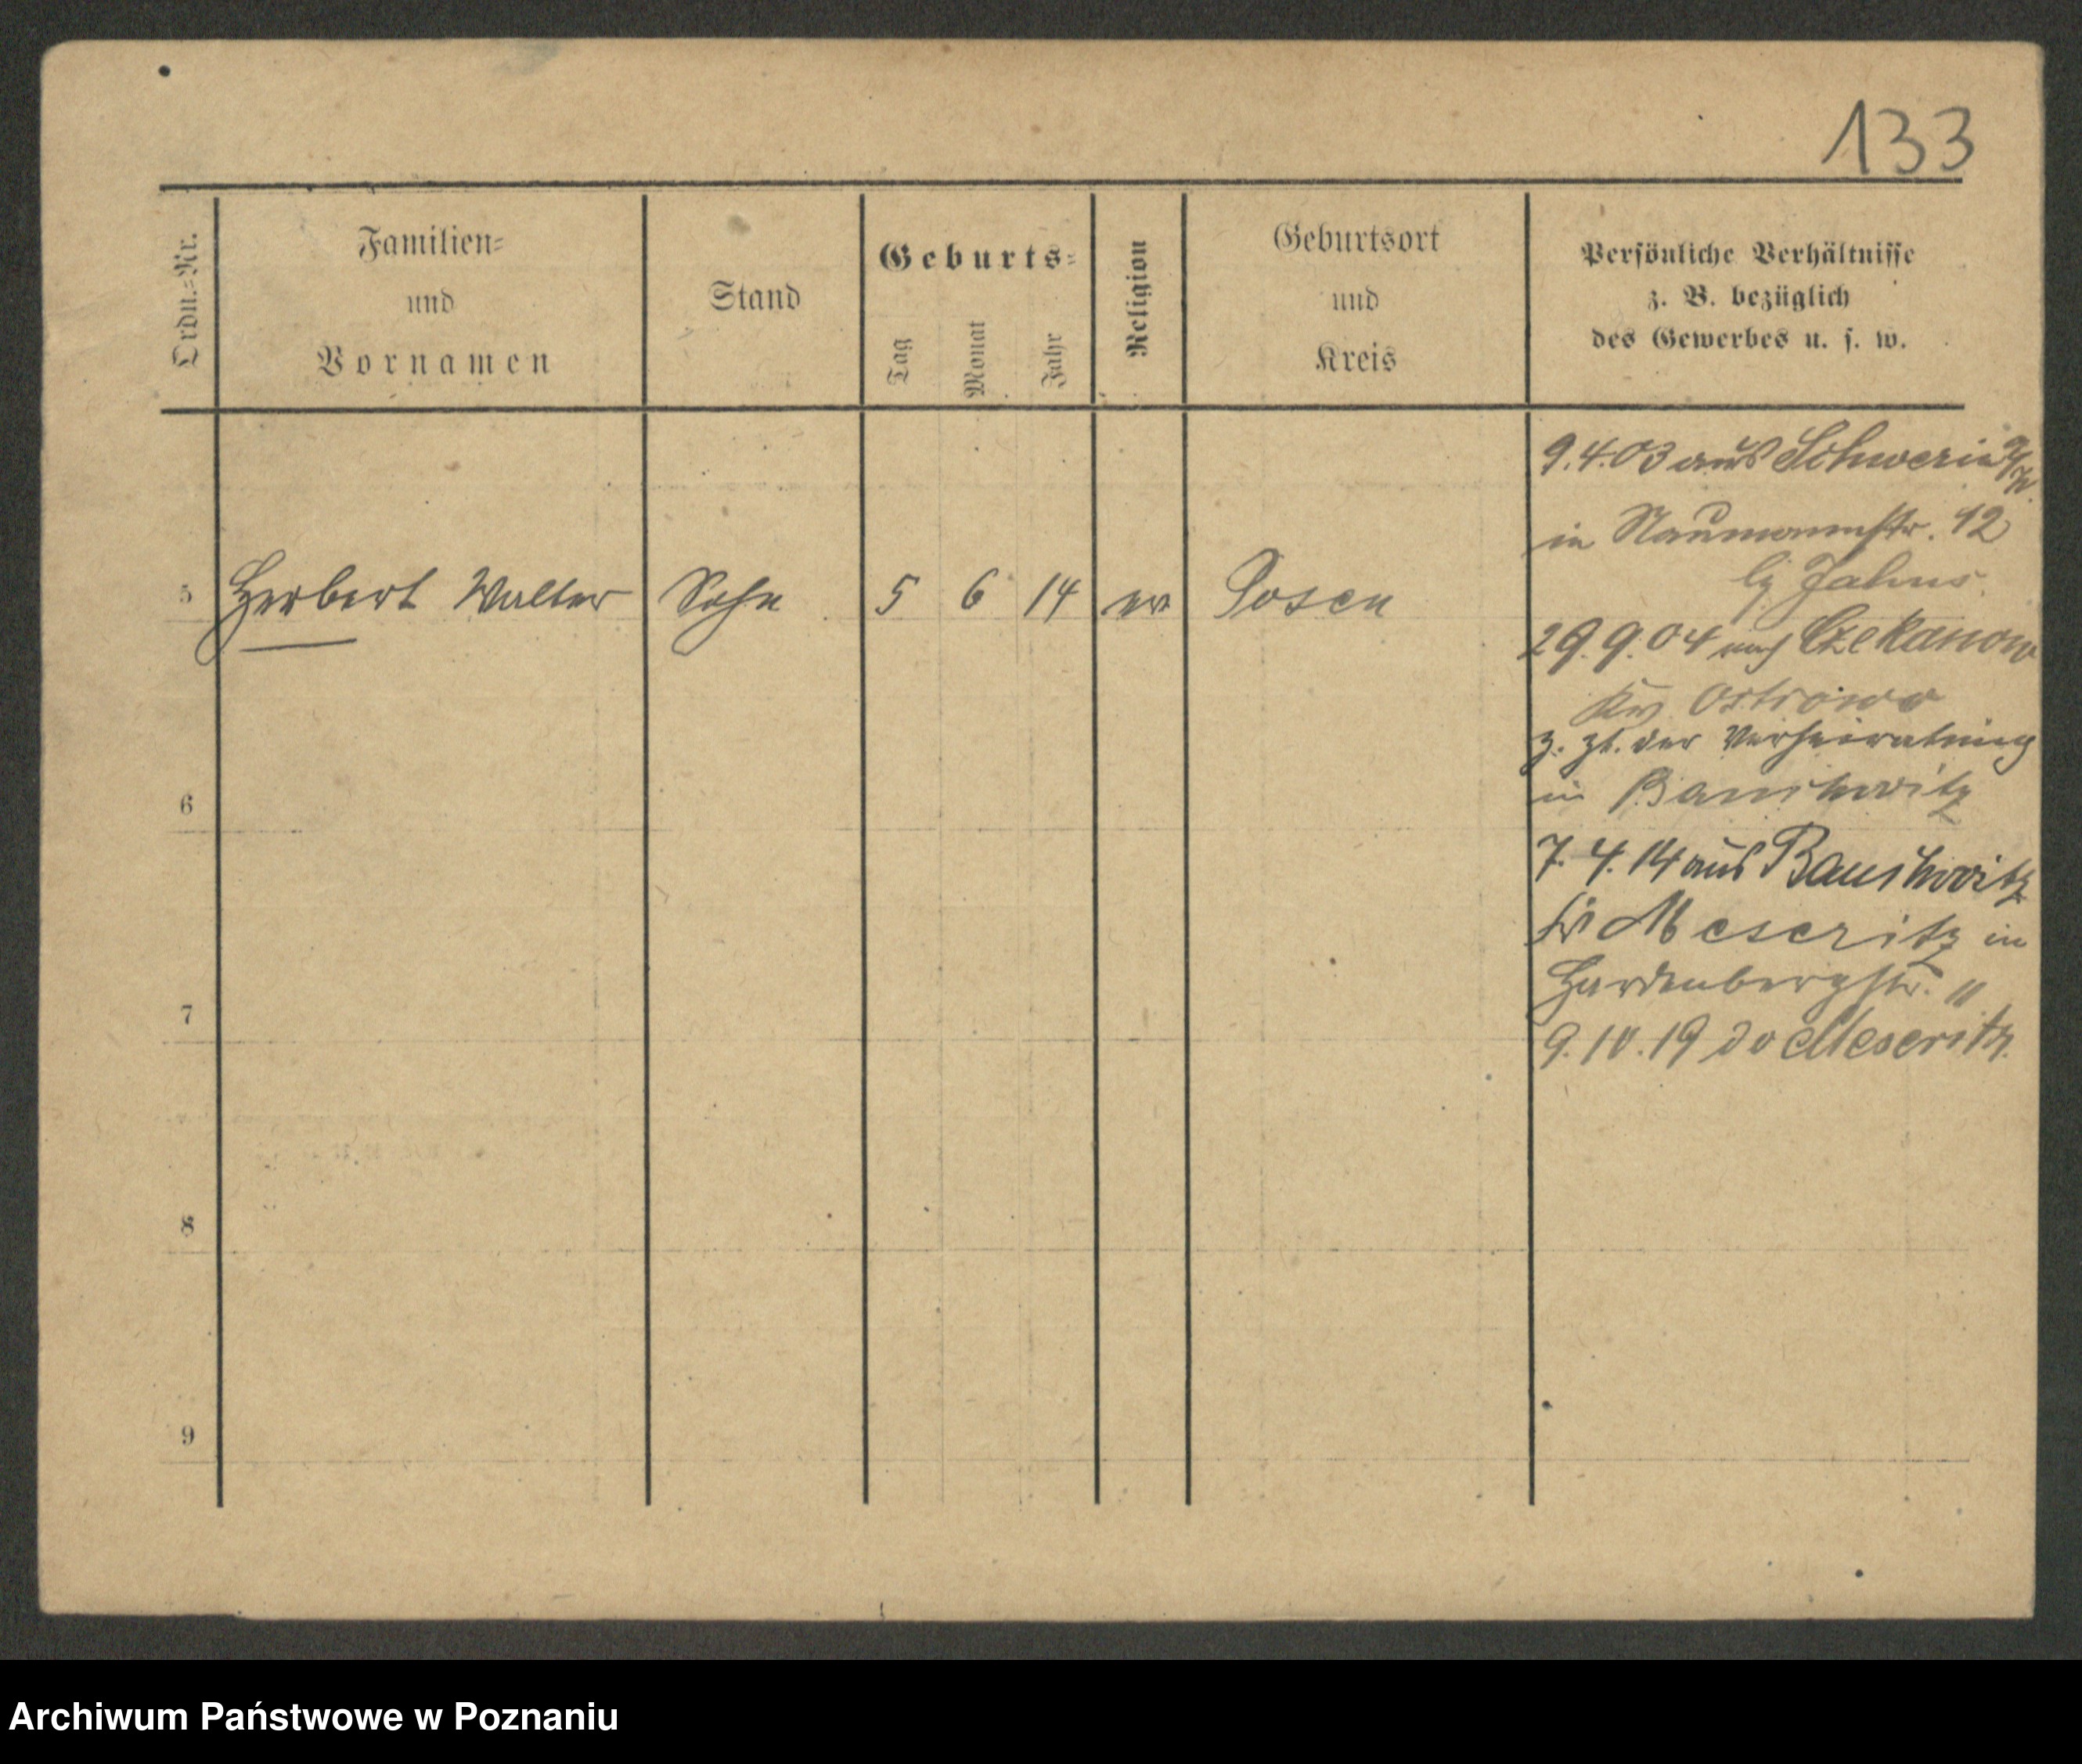 133
Ordn.=Nr.
Familien=
und
Vornamen
Stand
Geburts=
Tag
Monat
Jahr
Religion
Geburtsort
und
Kreis
Persönliche Verhältnisse
z. B. bezüglich
des Gewerbes u. s. w.
5 Herbert Walter Sohn 5 6 14 ev Posen
6
7
8
9
9.4.03 aus Schwerin a/W.
in Naumannstr. 12
bei Jahns.
29.9.04 nach Czekanow
Kr. Ostrowo
z. Zt. der Verheiratung
in Bauchwitz
7.4.14 aus Bauchwitz
Kr Meseritz in
Hardenbergstr. 11
9.10.19 do Meseritz.
Archiwum Państwowe w Poznaniu